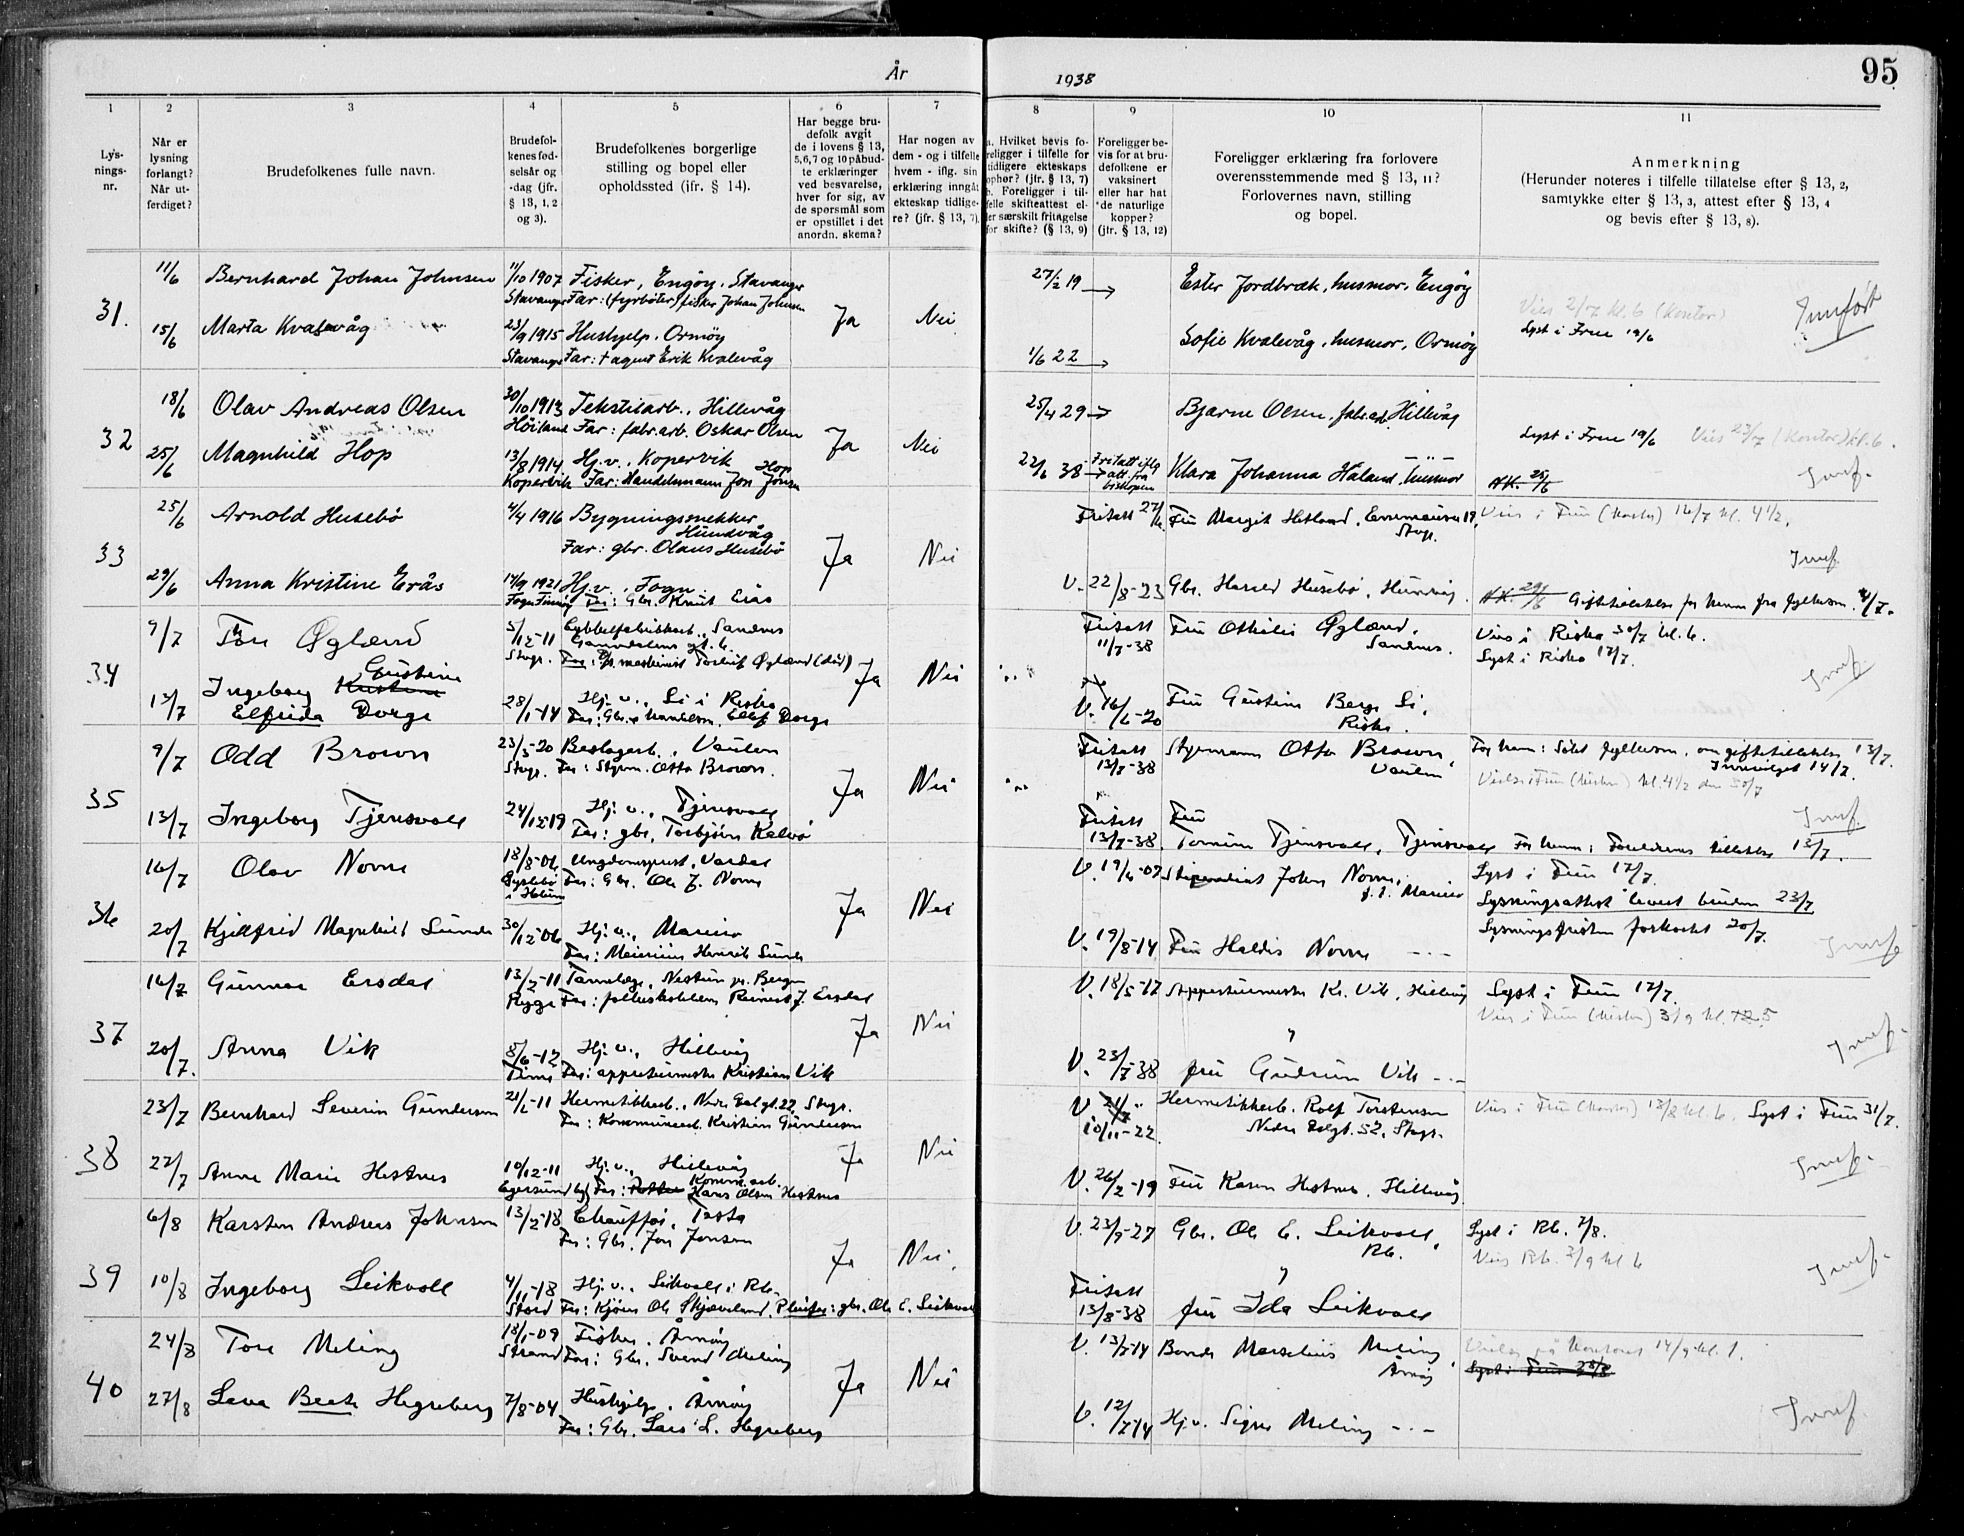 År 1938
95
1 2 3 4 5 6 7 8 9 10 11
Lys-
nings-
nr.
Når er
lysning
forlangt?
Når ut-
ferdiget?
Brudefolkenes fulle navn.
Brudefol-
kenes fød-
selsår og
-dag (jfr.
§ 13, 1, 2
og 3).
Brudefolkenes borgerlige
stilling og bopel eller
opholdssted (jfr. § 14).
Har begge bru-
defolk avgit
de i lovens § 13,
5,6,7 og 10 påbud-
te erklæringer
ved besvarelse,
hver for sig, av
de spørsmål som
er opstillet i det
anordn. skema?
Har nogen av
dem - og i tilfelle
hvem - iflg. sin
erklæring inngåt
ekteskap tidlige-
re? (jfr. § 13, 7).
a. Hvilket bevis fo-
religger i tilfelle for
tidligere ekteskaps
ophør? (jfr. § 13, 7)
b. Foreligger i til-
felle skifteattest el-
ler særskilt fritagelse
for skifte? (§ 13, 9)
Foreligger be-
vis for at bru-
defolkene er
vaksinert
eller har hat
de naturlige
kopper?
(jfr. § 13, 12)
Foreligger erklæring fra forlovere
overensstemmende med § 13, 11?
Forlovernes navn, stilling
og bopel.
Anmerkning
(Herunder noteres i tilfelle tillatelse efter § 13, 2,
samtykke efter § 13, 3, attest efter § 13, 4
og bevis efter § 13, 8).
31. 11/6 Bernhard Johan Johnsen 11/10 1907 Fisker, Engøy, Stavanger 27/2 19 → Ester Jordbræk, husmor, Engøy
Stavanger Far: (fyrbøter) fisker Johan Johnsen Ja Nei Vies 2/7 kl. 6 (Kontor) Innført
15/6 Marta Kvalevåg 23/9 1915 Hushjelp, Ormøy 1/6 22 → Sofie Kvalevåg, husmor, Ormøy Lyst i Frue 19/6
Stavanger Far: † agent Erik Kvalevåg
32 18/6 Olav Andreas Olsen 30/10 1913 Tekstilarb., Hillevåg 25/4 29 → Bjarne Olsen, fabr.arb. Hillevåg
Høiland Far: fabr.arb. Oskar Olsen Ja Nei Lyst i Frue 19/6 Vies 23/7 (Kontor) kl. 6.
25/6 Magnhild Hop 13/8 1914 Hj.v., Kopervik 22/6 38 Fritatt iflg att. fra biskopen Klara Johanna Håland, husmor Innf.
Kopervik Far: Handelsmann Jon Jonsen Hop N.K. 25/6
33 25/6 Arnold Husebø 4/4 1916 Bygningssnekker Fritatt 27/6 Fru Margit Hetland, 19, Stvgr. Vies i Frue 16/7 kl. 4 1/2.
Hundvåg
Far: gbr. Olaus Husebø Ja Nei Innf.
29/6 Anna Kristine Erås 14/9 1921 Hj.v., Fogn V. 22/8-23 Gbr. Harald Husebø, Hundvåg. N.K. 29/6 Giftetillatelse for henne fra fylkesm. 4/7.
Fogn Finnøy Far: Gbr. Knut Erås
34 9/7 Tor Øgland 5/12-11 Sandnes Fritatt 11/7-38 Fru Othilie Øgland, Sandnes. Vies i Riska 30/7 kl. 6.
Stvgr. Far: maskinist Torleif Øgland (død) Ja Nei Lyst i Riska 17/7.
13/7 Ingeborg Kristine Gustine Elfrida Dorge 28/1-14 Hj.v., Li i Riska V. 16/6-20 Fru Gustine Berge Li, Riska. Innf.
Far: Gbr. Ellef Dorge
35 9/7 Odd Brown 23/3-20 Beslagarb., Vaulen Fritatt 13/7-38 Styrmann Otto Brown, Vaulen For henne: Søkt fylkesm. om giftetillatelse 13/7. Innvilget 14/7.
Stvgr. Far: Styrm. Otto Brown. Ja Nei kl. 4 1/2 den 30/7
13/7 Ingeborg Tjensvoll 24/12-19 Hj.v., Tjensvoll Fritatt 13/7-38. Fru Tomine Tjensvoll, Tjensvoll Innf.
Far: gbr. Torbjørn Kalvø For henne: Foreldrenes tillatelse 13/7.
36 16/7 Olav Nome 18/8-06 Ungdomsprest, Vardal V. 19/6-07 Stipendiat John Nome, Lyst i Frue 17/7.
Øyslebø i Holum Far: Gbr. Ole J. Nome Ja Nei Lysningsattest levert bruden 23/7
20/7 Kjellfrid Magnhild Sunde 30/12-06 Hj.v., Mariero V. 19/8-14 Fru Haldis Nome -.- Lysningsfristen forkortet 20/7.
Far: Meierieier Henrik Sunde Innf.
37 16/7 Gunnar Ersdal 13/2-11 Tannlege, Nestun pr. Bergen V. 18/5-17 Appreturmester Kr. Vik, Hillevåg Lyst i Frue 17/7.
Rygge Far: folkeskolelærer Reinert J. Ersdal Ja Nei Vies i Frue 3/9 kl. 5
20/7. Anna Vik 8/6-12 Hj.v., Hillevåg V. 23/7-38 fru Gudrun Vik -.- Innf.
Time Far: appreturmester Kristian Vik
38 23/7 Bernhard Severin Gundersen 21/6-11 Hermetikkarb., Nedre Dalgt. 22, Stvgr. V. 10/11-22. Hermetikkarb. Rolf Torstensen Vies i Frue 13/8 kl. 6. Lyst i Frue 31/7.
Far: Kommunearb. Kristian Gundersen Ja Nei Nedre Dalgt. 52, Stvgr.
27/7 Anne Marie Hestnes 10/12-11 Hj.v., Hillevåg V. 26/2-19 Fru Karen Hestnes, Hillevåg. Innf.
Egersund Far: Komm.arb. Hans Olsen Hestnes
39 6/8 Karsten Andreas Johnsen 13/2-18 Chauffør, Tasta V. 23/9-27 Gbr. Ole E. Leikvoll, Rb. Lyst i Rb. 7/8.
Far: Gbr. Jon Jonsen Ja Nei. Vies Rb. 3/9 kl 6
10/8 Ingeborg Leikvoll 4/11-18 Hj.v., Leikvoll i Rb. Fritatt 13/8-38 fru Ida Leikvoll Innf.
Stord Far: Kjøm. Ole Skjæveland. Pleiefar: gbr. Ole E. Leikvoll
40 24/8 Tore Meling 18/1-09 Fisker, Åmøy V. 13/7-14 Bonde Marselius Meling, Åmøy Vielse på kontoret 14/9 kl. 1.
Strand Far: Gbr. Svend Meling Ja Nei Lyst i Frue 28/8
27/8 Lava Beate Hegreberg 7/8-04 Hushjelp, Åmøy V. 12/7 14 Hj.v. Signe Meling -.- Innf.
Far: Gbr. Lars L. Hegreberg